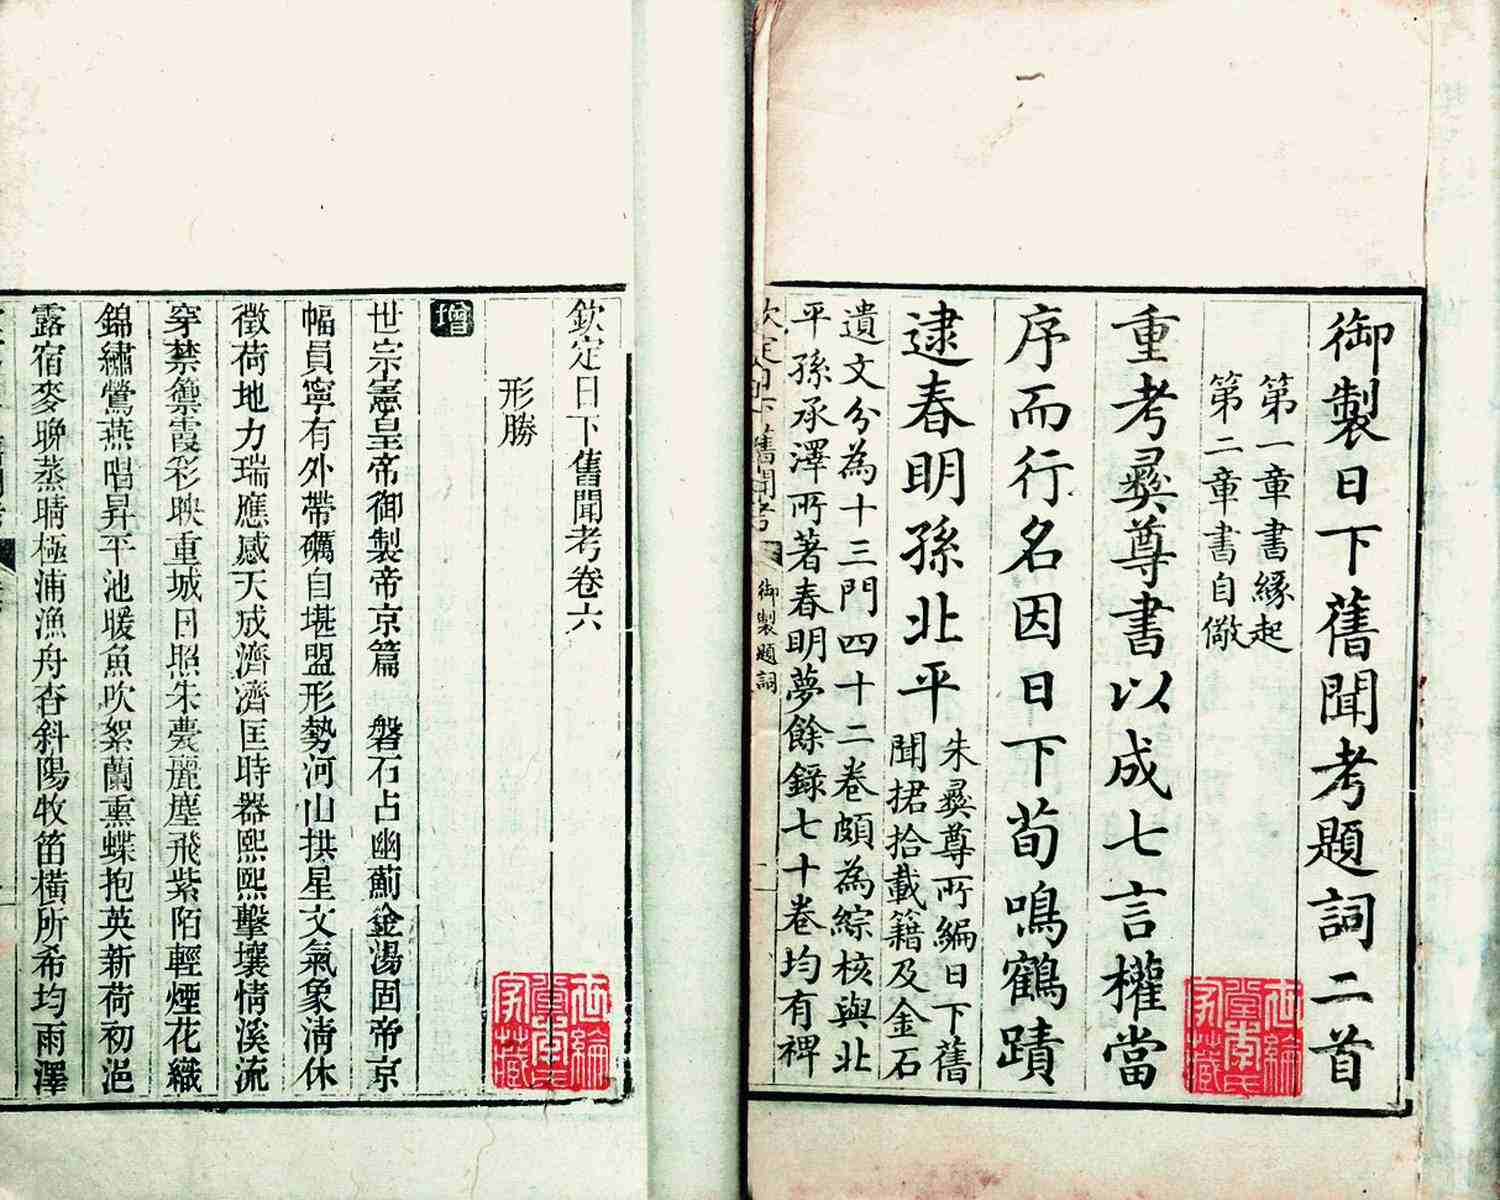 御製日下舊聞考題詞二首
第一章書緣起
第二章書自儆
重考彝尊書以成七言權當
序而行名因日下荀鳴鶴蹟
逮春明孫北平
朱彝尊所編日下舊
聞捃拾載籍及金石
遺文分為十三門四十二卷頗為綜核與北
平孫承澤所著春明夢餘錄七十卷均有裨
欽定日下舊聞考
御製題詞
欽定日下舊聞考卷六
形勝
增
世宗憲皇帝御製帝京篇 磐石占幽薊金湯固帝京
幅員寧有外帶礪自堪盟形勢河山拱星文氣象淸休
徵荷地力瑞應感天成濟濟匡時器熙熙擊壤情溪流
穿禁籞霞彩映重城日照朱甍麗塵飛紫陌輕煙花織
錦繡鶯燕唱昇平池暖魚吹絮蘭熏蝶抱英新荷初浥
露宿麥晚蒸晴極浦漁舟杳斜陽牧笛橫所希均雨澤